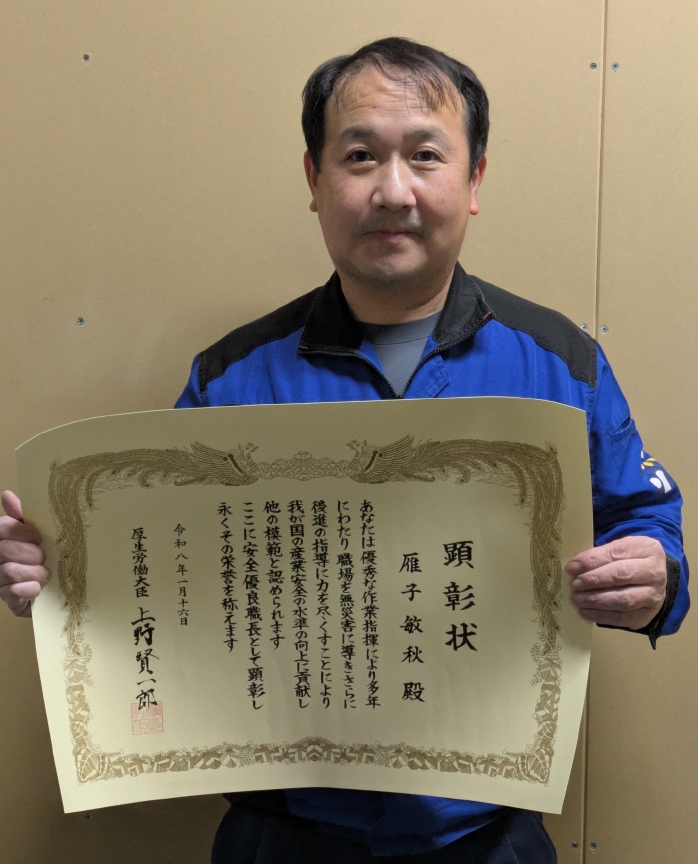 顕彰状
雁子敏秋殿
あなたは優秀な作業指揮により多年
にわたり職場を無災害に導きさらに
後進の指導に力を尽くすことにより
我が国の産業安全の水準の向上に貢献し
他の模範と認められます
ここに安全優良職長として顕彰し
永くその栄誉を称えます
令和八年一月十六日
厚生労働大臣 上野賢一郎